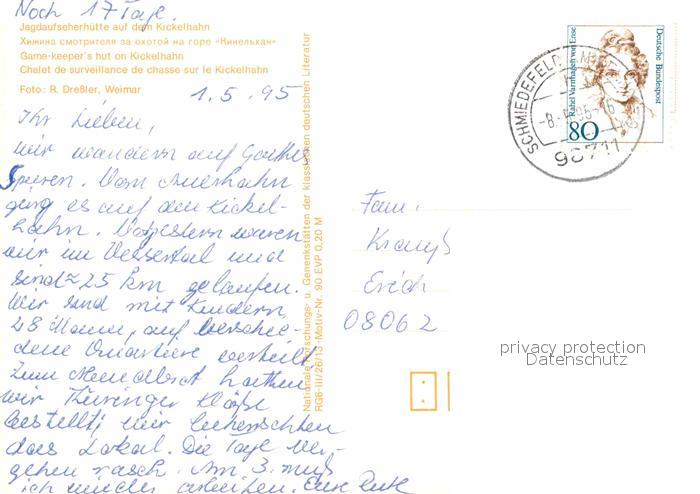 Noch 17 Tage.
Jagdaufseherhütte auf dem Kickelhahn
Хижина смотрителя за охотой на горе «Кикельхан»
Game-keeper's hut on Kickelhahn
Chalet de surveillance de chasse sur le Kickelhahn
Foto: R. Dreßler, Weimar
1.5.95
Ihr Lieben,
wir wandern auf Goethes
Spuren. Vom Auerhahn
ging es auf den Kickel-
hahn. Vorgestern waren
wir im Vessertal und
sind ≈ 25 km gelaufen.
Wir sind mit Kindern
28 Mann, auf verschie-
dene Quartiere verteilt.
Zum Abendbrot hatten
wir Thüringer Klöße
bestellt,
das Lokal. Die Tage ver-
gehen rasch. Am 3. muß
ich wieder arbeiten. Eure
Nationale Forschungs- u. Gedenkstätten der klassischen deutschen Literatur
RG6-III/26/13-Motiv-Nr. 90 EVP 0,20 M
Fam.
Krauß
Erich
08062
Deutsche Bundespost
Rahel Varnhagen von Ense
80
SCHMIEDEFELD
98711
privacy protection
Datenschutz